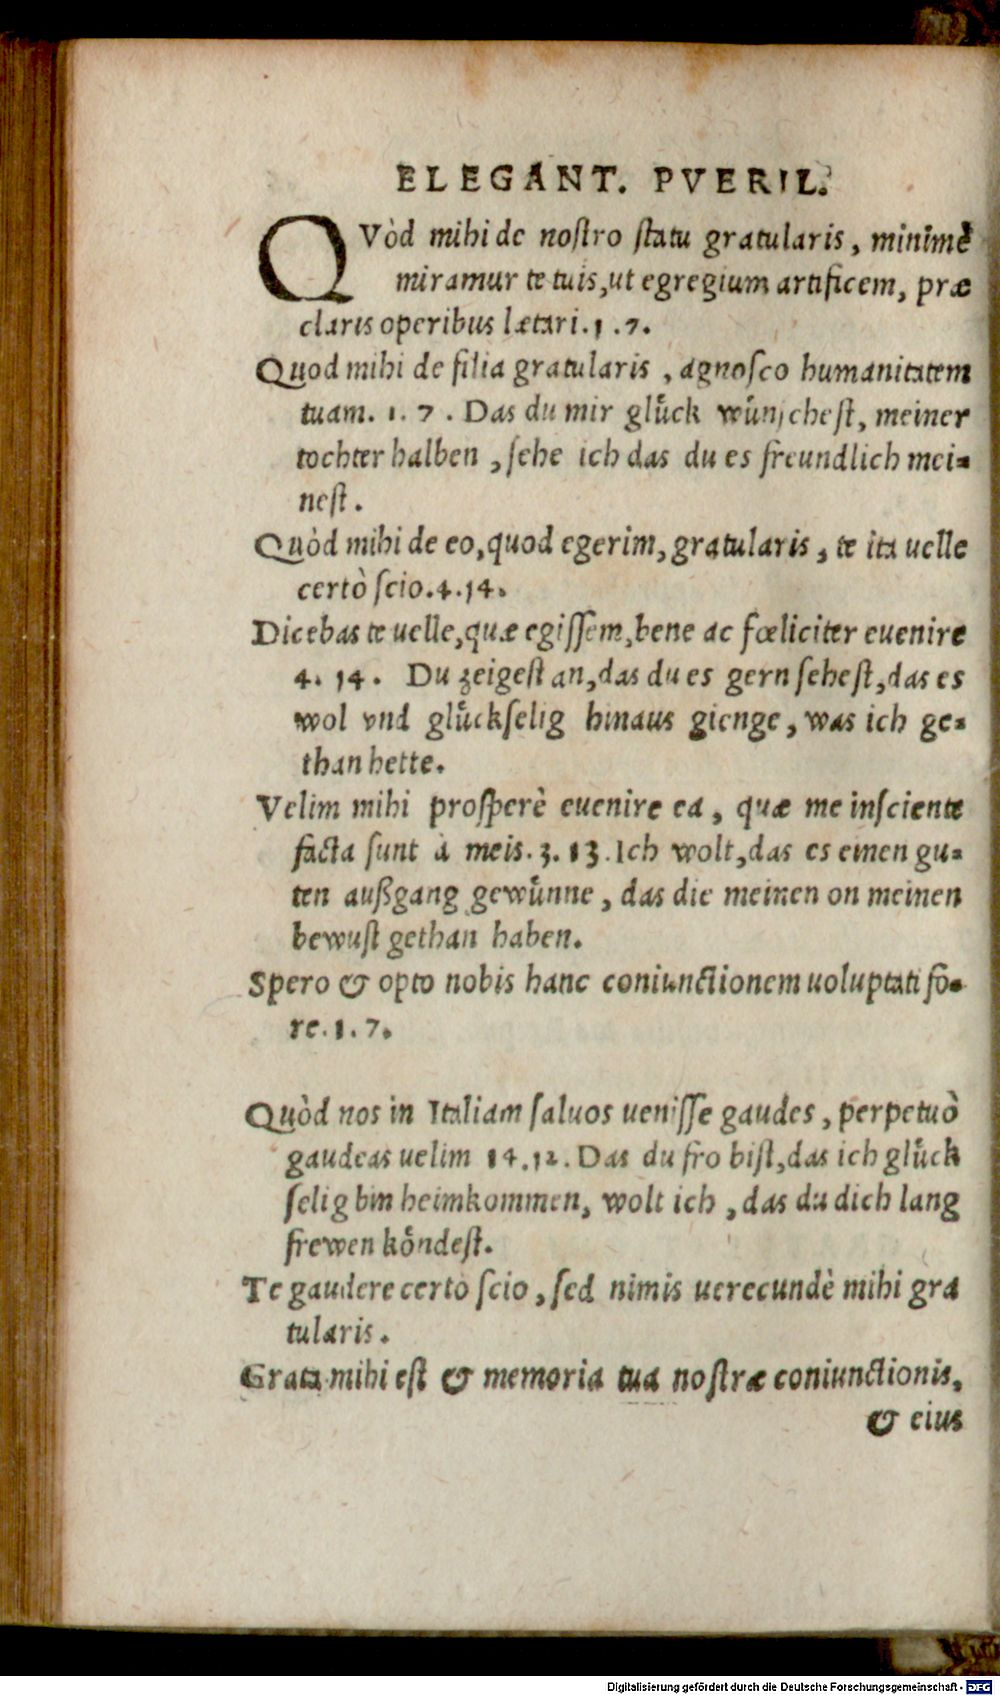 ELEGANT. PVERIL.
QVòd mihi de nostro statu gratularis, minimè
miramur te tuis, ut egregium artificem, præ
claris operibus lætari. 1. 7.
Quod mihi de filia gratularis, agnosco humanitatem
tuam. 1. 7. Das du mir glůck wůnschest, meiner
tochter halben, sehe ich das du es freundlich mei-
nest.
Quòd mihi de eo, quod egerim, gratularis, te ita uelle
certò scio. 4. 14.
Dicebas te uelle, quæ egissem, bene ac fœliciter euenire
4. 14. Du zeigest an, das du es gern sehest, das es
wol vnd glůckselig hinaus gienge, was ich ge-
than hette.
Velim mihi prosperè euenire ea, quæ me insciente
facta sunt à meis. 3. 13. Ich wolt, das es einen gu-
ten außgang gewůnne, das die meinen on meinen
bewust gethan haben.
Spero & opto nobis hanc coniunctionem uoluptati fo-
re. 1. 7.
Quòd nos in Italiam saluos uenisse gaudes, perpetuò
gaudeas uelim 14. 12. Das du fro bist, das ich glůck
selig bin heimkommen, wolt ich, das du dich lang
frewen kőndest.
Te gaudere certò scio, sed nimis uerecundè mihi gra
tularis.
Grata mihi est & memoria tua nostræ coniunctionis,
& eius
Digitalisierung gefördert durch die Deutsche Forschungsgemeinschaft - DFG